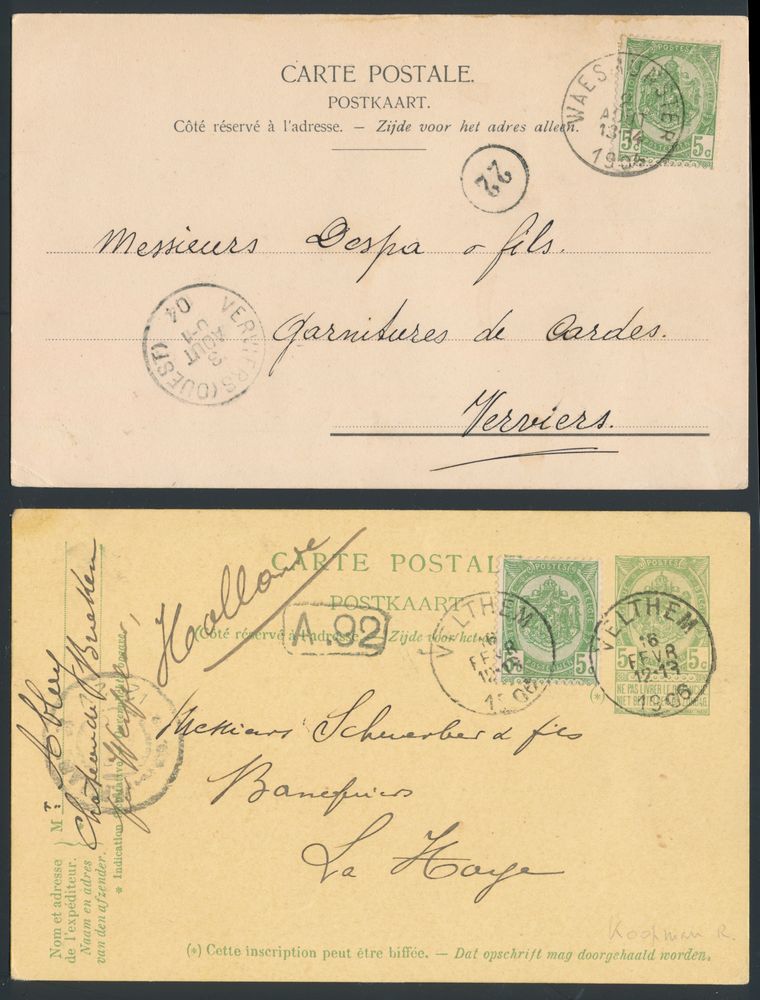 CARTE POSTALE.
POSTKAART.
Côté réservé à l'adresse. — Zijde voor het adres alleen.
POSTES
5c 5c
WAESMUNSTER
2
AOUT
13-14
1904
22
Messieurs Despa & fils.
Garnitures de Cardes.
Verviers.
VERVIERS (OUEST)
3
AOUT
0-1
04
CARTE POSTALE
POSTKAART
(Côté réservé à l'adresse. Zijde voor het
Hollande
A.92
POSTES
5c
VELTHEM
16
FEVR
12-13
1906
POSTES
5c 5c
NE PAS LIVRER LE DIMANCHE
(*)
VELTHEM
16
FEVR
12-13
1906
Messieurs Scheurleer & fils
Banquiers
La Haye
Nom et adresse
de l'expéditeur.
Naam en adres
van den afzender.
Mr
Château de
* Indication
Koopman R.
(*) Cette inscription peut être biffée. — Dat opschrift mag doorgehaald worden.